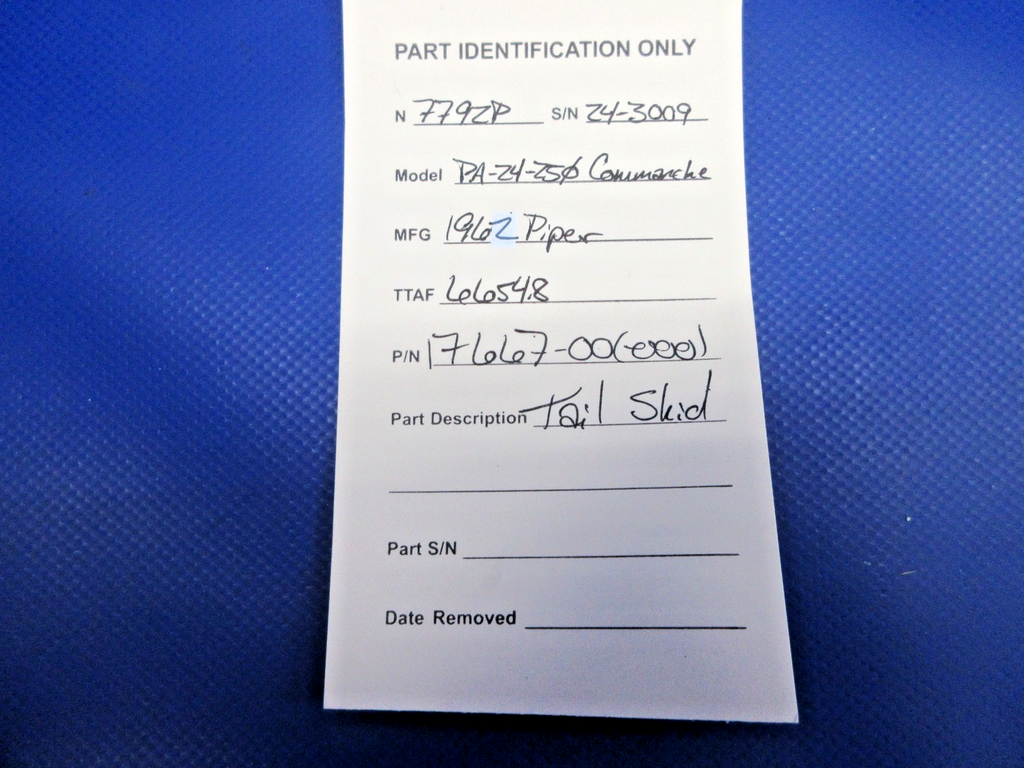 PART IDENTIFICATION ONLY
N 7792P S/N 24-3009
Model PA-24-250 Commanche
MFG 1962 Piper
TTAF 6654.8
P/N 17667-00(-000)
Part Description Tail Skid
Part S/N
Date Removed